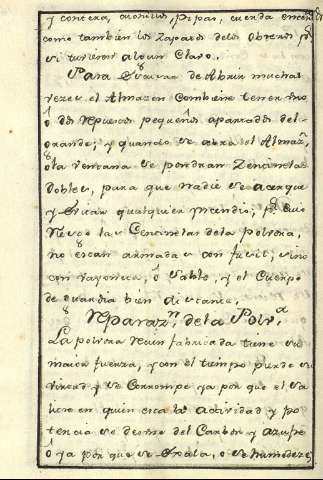 y contera, cuchillos, Pipas, cuerda encend
como tambien los Zapatos delos Obreros pr
si tuviesen algun Clavo.
Para Escusar de Abrir muchas
vezes el Almazen Combiene tener uno
ô dos Repuestos pequeños apartados del
grande; y quando se abra el Almazn
ô la ventana se pondran Zentinelas
dobles, para que nadie se acerque
y Evitar qualquier Yncendio, pr cuio
Riesgo las Centinelas dela Polvora,
no estan armadas con fusil, sino
con vayoneta, ô sable, y el Cuerpo
de guardia bien distante,
Reparazn de la Polva
La polvora recien fabricada tiene su
maior fuerza, y con el tiempo pierde su
virtud y se Corrompe ya por que el Sa
litre en quien esta la actividad y po
tencia se desune del Carbon y azufre
ô ya por que se Exala, ô se humedeze,